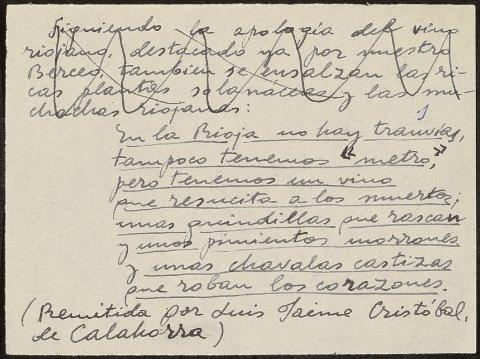 Siguiendo la apología del vino
riojano, destacado ya por nuestro
Berceo, también se ensalzan las ri-
cas plantas solanáceas y las mu-
chachas riojanas:
En la Rioja no hay tranvías,
tampoco tenemos "metro",
pero tenemos un vino
que resucita a los muertos;
unas guindillas que rascan
y unos pimientos morrones
y unas chavalas castizas
que roban los corazones.
(Remitida por Luis Jaime Cristóbal,
de Calahorra)